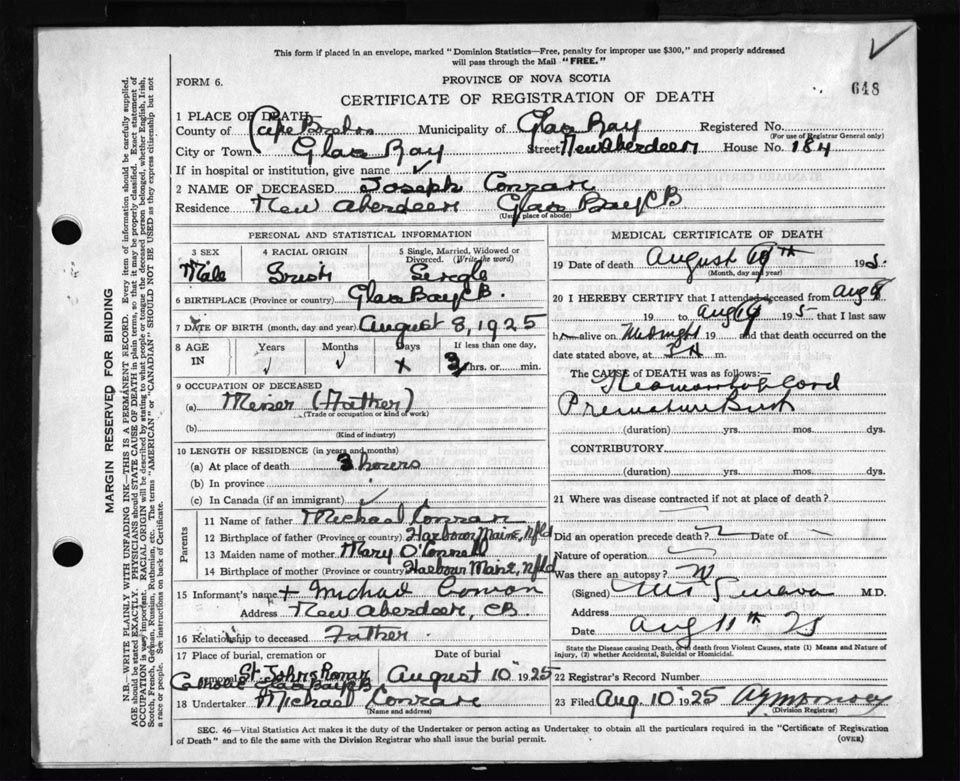 This form if placed in an envelope, marked "Dominion Statistics—Free, penalty for improper use $300," and properly addressed
will pass through the Mail "FREE."
FORM 6.
PROVINCE OF NOVA SCOTIA
648
CERTIFICATE OF REGISTRATION OF DEATH
1 PLACE OF DEATH
County of Cape Breton Municipality of Glace Bay Registered No.
(For use of Registrar General only)
City or Town Glace Bay Street New Aberdeen House No. 184
If in hospital or institution, give name
2 NAME OF DECEASED Joseph Conran
Residence New Aberdeen Glace Bay CB
(Usual place of abode)
PERSONAL AND STATISTICAL INFORMATION
3 SEX 4 RACIAL ORIGIN 5 Single, Married, Widowed or
Divorced. (Write the word)
Male Irish Single
6 BIRTHPLACE (Province or country) Glace Bay C.B.
7 DATE OF BIRTH (month, day and year) August 8, 1925
8 AGE IN Years Months Days If less than one day,
3 hrs. or min.
9 OCCUPATION OF DECEASED
(a) Miner (Father)
(Trade or occupation or kind of work)
(b)
(Kind of industry)
10 LENGTH OF RESIDENCE (in years and months)
(a) At place of death 3 hours
(b) In province
(c) In Canada (if an immigrant)
Parents
11 Name of father Michael Conran
12 Birthplace of father (Province or country) Harbour Maine, Nfld
13 Maiden name of mother Mary O'Connell
14 Birthplace of mother (Province or country) Harbour Maine, Nfld
15 Informant's name + Michael Conran
Address New Aberdeen, CB
16 Relationship to deceased Father
17 Place of burial, cremation or Date of burial
removal St. Johns Roman August 10 1925
Catholic Glace Bay CB
18 Undertaker Michael Conran
(Name and address)
MEDICAL CERTIFICATE OF DEATH
19 Date of death August th 19
(Month, day and year)
20 I HEREBY CERTIFY that I attended deceased from Aug
19 to Aug 19 that I last saw
h alive on Midnight 19 and that death occurred on the
date stated above, at m.
The CAUSE of DEATH was as follows:—
Cord
Premature Birth
(duration) yrs. mos. dys.
CONTRIBUTORY
(duration) yrs. mos. dys.
21 Where was disease contracted if not at place of death?
Did an operation precede death? Date of
Nature of operation
Was there an autopsy?
(Signed) M.D.
Address
Date Aug 11th 25
State the Disease causing Death, or in death from Violent Causes, state (1) Means and Nature of
Injury, (2) whether Accidental, Suicidal or Homicidal.
22 Registrar's Record Number
23 Filed Aug 10 1925
(Division Registrar)
SEC. 46—Vital Statistics Act makes it the duty of the Undertaker or person acting as Undertaker to obtain all the particulars required in the "Certificate of Registration
of Death" and to file the same with the Division Registrar who shall issue the burial permit.
(OVER)
MARGIN RESERVED FOR BINDING
N.B.—WRITE PLAINLY WITH UNFADING INK—THIS IS A PERMANENT RECORD. Every item of information should be carefully supplied.
AGE should be stated EXACTLY. PHYSICIANS should STATE CAUSE OF DEATH in plain terms, so that it may be properly classified. Exact statement of
OCCUPATION is very important. RACIAL ORIGIN will be described by stating to what people or tongue the deceased person belonged, whether English, Irish,
Scotch, French, German, Russian, Ruthenian, etc. The terms "AMERICAN" or "CANADIAN" SHOULD NOT BE USED as they express citizenship but not
a race or people. See instructions on back of Certificate.